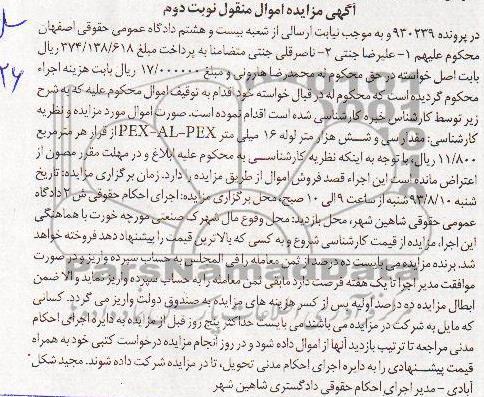 آگهی مزایده اموال منقول نوبت دوم
در پرونده ۹۳۰۲۳۹ و به موجب نیابت ارسالی از شعبه بیست و هشتم دادگاه عمومی حقوقی اصفهان
محکوم علیهم ۱- علیرضا جنتی ۲- ناصرقلی جنتی متضامنا به پرداخت مبلغ ۳۷۴/۱۳۸/۶۱۸ ریال
بابت اصل خواسته در حق محکوم له محمدرضا هارونی و مبلغ ۱۷/۰۰۰۰۰۰ ریال بابت هزینه اجراء
محکوم گردیده است که محکوم له در قبال خواسته خود اقدام به توقیف اموال محکوم علیه که به شرح
زیر توسط کارشناس خبره کارشناسی شده است اقدام نموده است. صورت اموال مورد مزایده و نظریه
کارشناسی: مقدار سی و شش هزار متر لوله ۱۶ میلی متر PEX-AL-PEX از قرار هر مترمربع
۱۱/۸۰۰ ریال، با توجه به اینکه نظریه کارشناسی به محکوم علیه ابلاغ و در مهلت مقرر مصون از
اعتراض مانده است این اجراء قصد فروش اموال از طریق مزایده را دارد. زمان برگزاری مزایده: تاریخ
شنبه ۹۳/۸/۱۰ شنبه از ساعت ۹ الی ۱۰ صبح، محل برگزاری مزایده: اجرای احکام حقوقی ش ۲ دادگاه
عمومی حقوقی شاهین شهر، محل بازدید: محل وقوع مال شهرک صنعتی مورچه خورت با هماهنگی
این اجراء، مزایده از قیمت کارشناسی شروع و به کسی که بالاترین قیمت را پیشنهاد دهد فروخته خواهد
شد. برنده مزایده می بایست ده درصد از ثمن معامله را فی المجلس به حساب سپرده واریز و در صورت
موافقت مدیر اجرا تا یک هفته فرصت دارد مابقی ثمن معامله را به حساب سپرده واریز نماید و الا ضمن
ابطال مزایده ده درصد اولیه پس از کسر هزینه های مزایده به صندوق دولت واریز می گردد. کسانی
که مایل به شرکت در مزایده می باشند می بایست حداکثر پنج روز قبل از مزایده به دایره اجرای احکام
مدنی مراجعه تا ترتیب بازدید آنها از اموال داده شود و در روز انجام مزایده درخواست کتبی خود به همراه
قیمت پیشنهادی را به دایره اجرای احکام مدنی تحویل، تا در مزایده شرکت داده شوند. مجید شکل
آبادی - مدیر اجرای احکام حقوقی دادگستری شاهین شهر
ParsNamadData